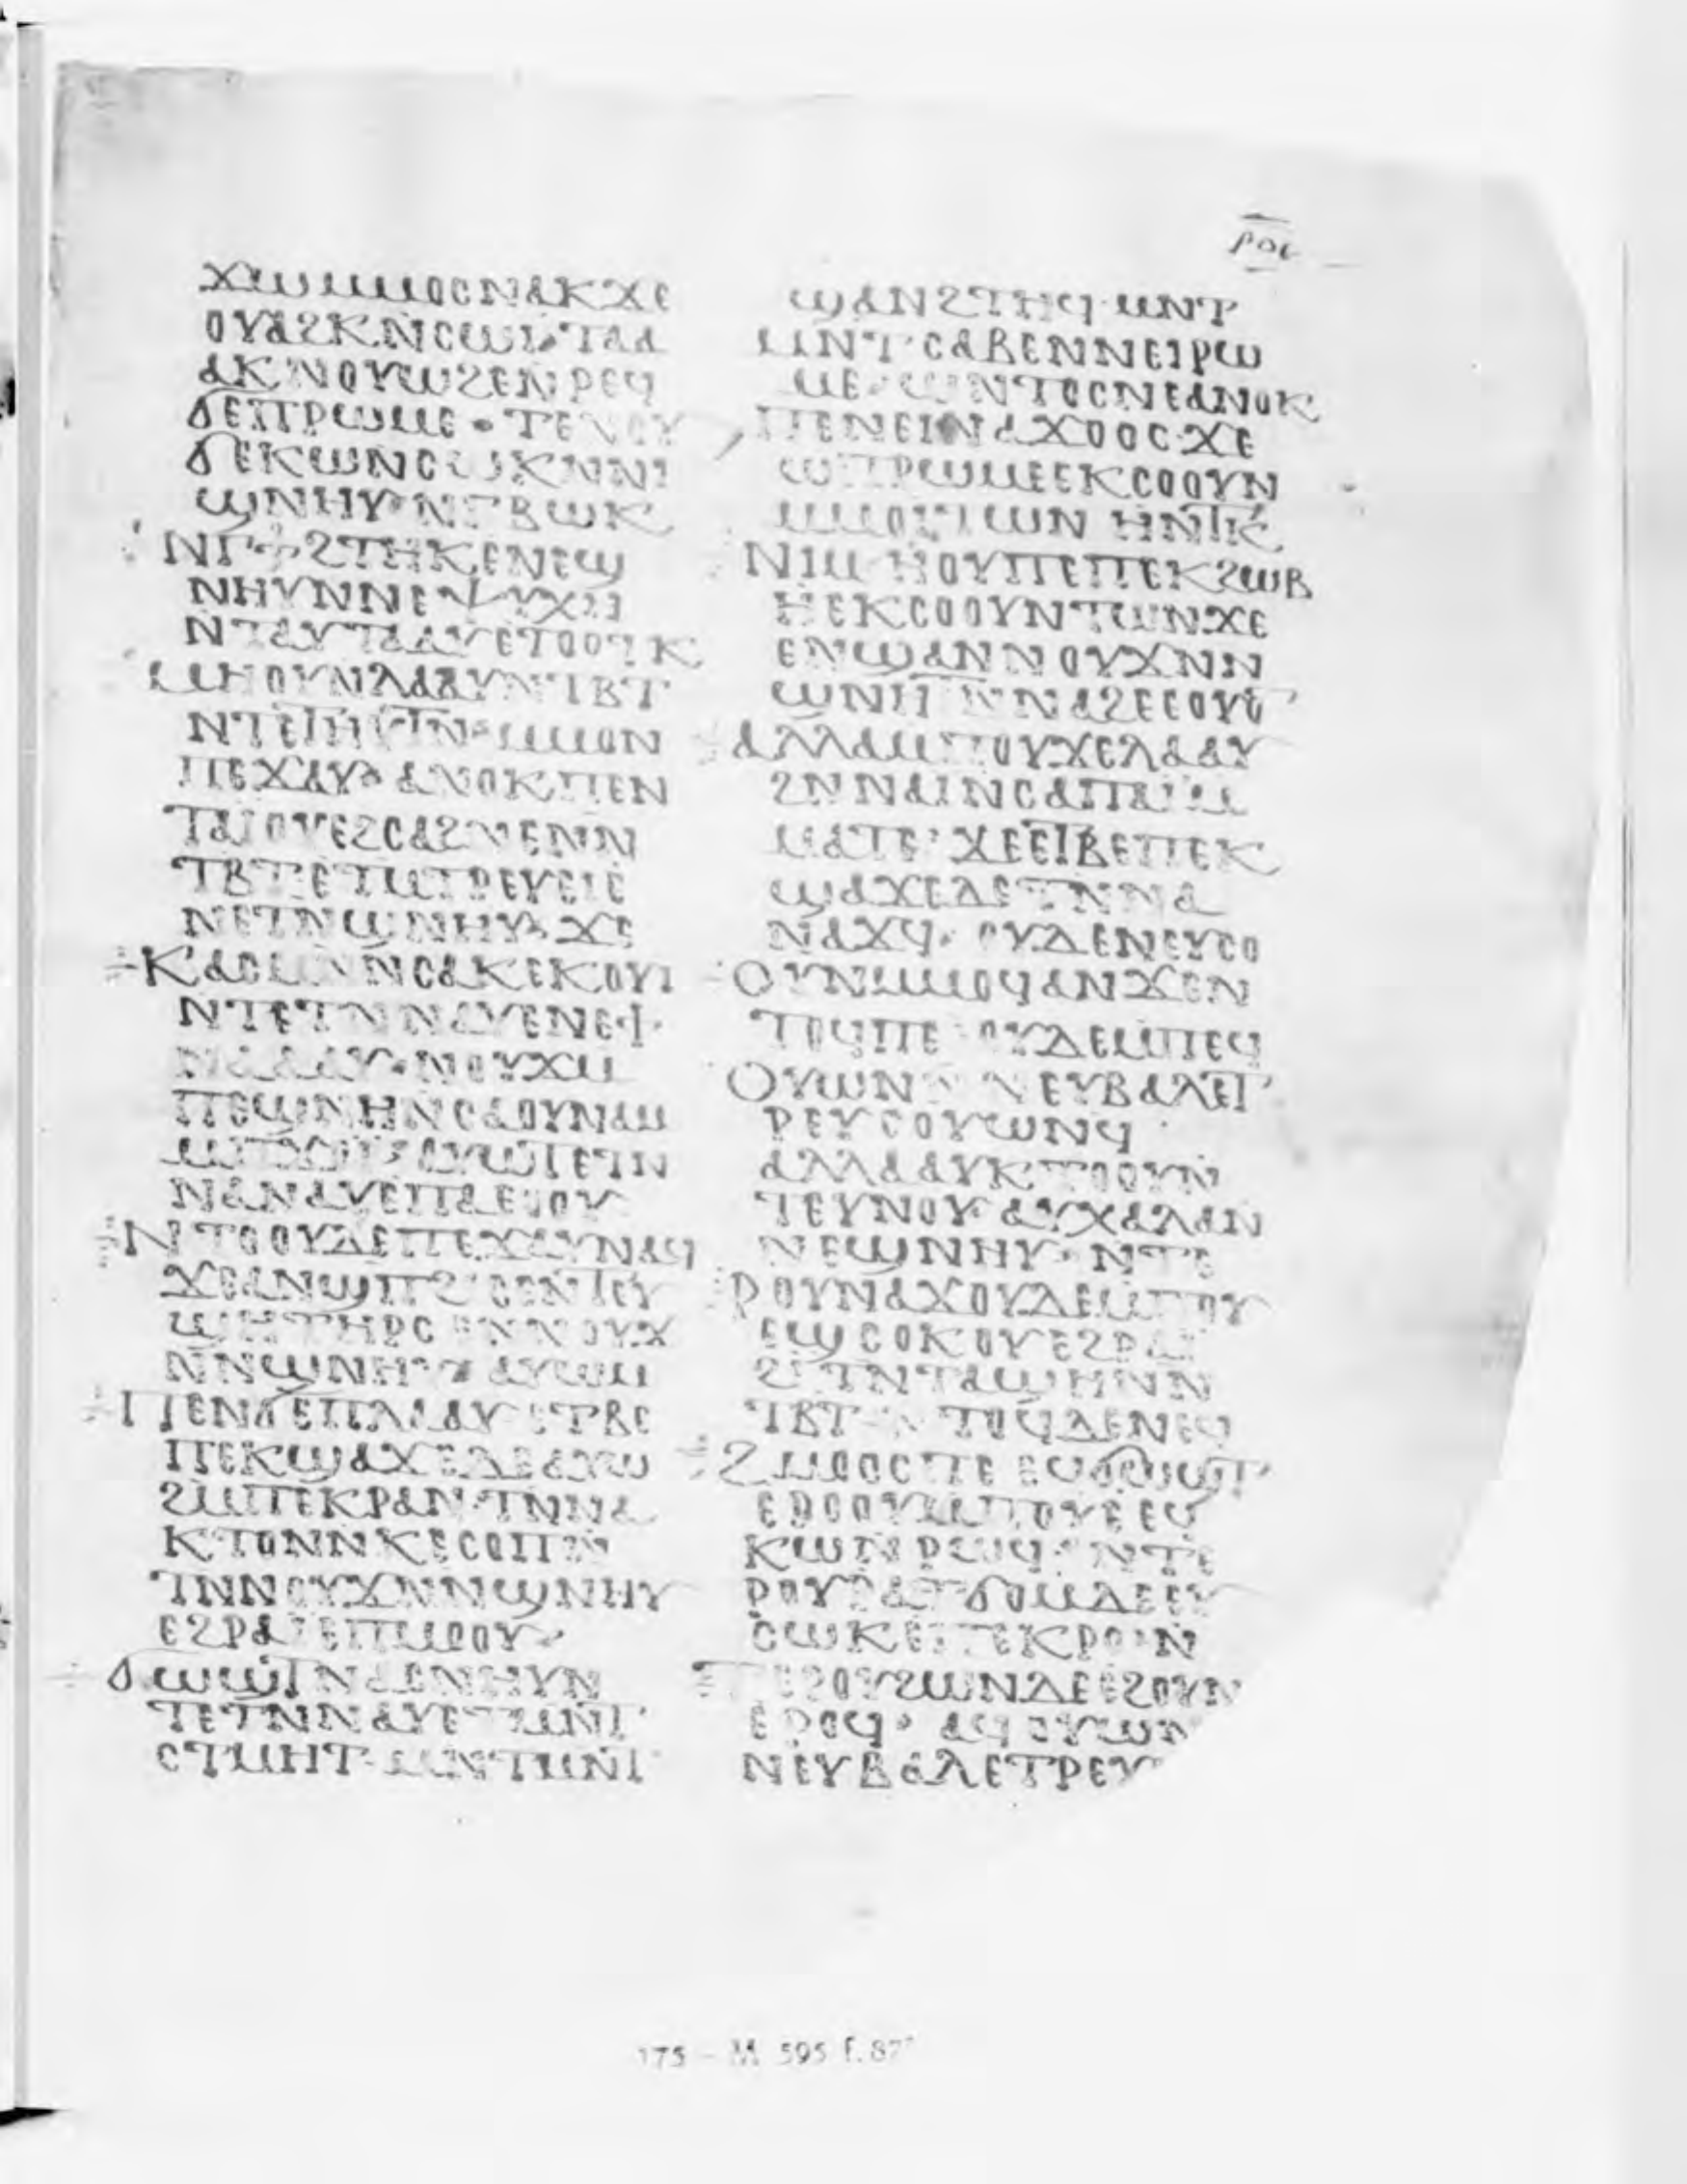 ⲣⲟⲉ
ϫⲱⲙⲙⲟⲥⲛⲁⲕϫⲉ
ⲟⲩⲁϩⲕⲛⲥⲱⲓ·ⲧⲁⲁ
ⲁⲕⲛⲟⲩⲱϩⲉⲛⲣⲉϥ
ϭⲉⲡⲣⲱⲙⲉ·ⲧⲉⲛⲟⲩ
ϭⲉⲕⲱⲛⲥⲱⲕⲛⲛⲓ
ϣⲛⲏⲩ·ⲛⲅⲃⲱⲕ
ⲛⲅϯϩⲧⲏⲕⲉⲛⲉϣ
ⲛⲏⲩⲛⲛⲉⲯⲩⲭⲏ
ⲛⲧⲁⲩⲧⲁⲁⲩⲉⲧⲟⲟⲧⲕ
ⲙⲏⲟⲩⲛⲗⲁⲁⲩⲛⲧⲃⲧ
ⲛⲧⲉⲧⲏⲩⲧⲛ·ⲙⲙⲟⲛ
ⲡⲉϫⲁⲩ·ⲁⲛⲟⲕⲡⲉⲛ
ⲧⲁⲓⲟⲩⲉϩⲥⲁϩⲛⲉⲛⲛ
ⲧⲃⲧⲉⲧⲙⲧⲣⲉⲩⲉⲓⲉ
ⲛⲉⲧⲛϣⲛⲏⲩ·ϫⲉ
ⲕⲁⲥⲙⲛⲛⲥⲁⲕⲉⲕⲟⲩⲓ
ⲛⲧⲉⲧⲛⲛⲁⲩⲉⲛⲉϥ
ⲛⲟⲩϫⲙ
ⲡⲉϣⲛⲏⲛⲥⲁⲟⲩⲛⲁⲙ
ⲙⲡϫⲟⲓ·ⲁⲩⲱⲧⲉⲧⲛ
ⲛⲁⲛⲁⲩⲉⲡⲁⲉⲟⲟⲩ
ⲛⲧⲟⲟⲩⲇⲉⲡⲉϫⲁⲩⲛⲁϥ
ϫⲉⲁⲛϣⲡϩⲓⲥⲉⲛⲧⲉⲩ
ϣⲏⲧⲏⲣⲥⲉⲛⲛⲟⲩϫ
ⲛⲛϣⲛⲏⲩ·ⲁⲩⲱⲙ
ⲡⲉⲛϭⲉⲡⲗⲁⲁⲩ·ⲉⲧⲃⲉ
ⲡⲉⲕϣⲁϫⲉⲇⲉⲁⲩⲱ
ϩⲙⲡⲉⲕⲣⲁⲛ·ⲧⲛⲛⲁ
ⲕⲧⲟⲛⲛⲕⲉⲥⲟⲡⲛ
ⲧⲛⲛⲟⲩϫⲛⲛϣⲛⲏⲩ
ⲉϩⲣⲁⲓⲉⲡⲙⲟⲟⲩ·
ϭⲱϣⲧⲛⲁⲥⲛⲏⲩⲛ
ⲧⲉⲧⲛⲛⲁⲩⲉⲧⲙⲛⲧ
ⲥⲧⲙⲏⲧ·ⲙⲛⲧⲙⲛⲧ
ϣⲁⲛϩⲧⲏϥ·ⲙⲛⲧ
ⲙⲛⲧⲥⲁⲃⲉⲛⲛⲉⲓⲣⲱ
ⲙⲉ·ⲉⲛⲧⲟⲥⲛⲉⲁⲛⲟⲕ
ⲡⲉⲛⲉⲓⲛⲁϫⲟⲟⲥ·ϫⲉ
ⲱⲡⲣⲱⲙⲉⲉⲕⲥⲟⲟⲩⲛ
ⲙⲙⲟⲛⲧⲱⲛ ⲏⲛⲧⲕ
ⲛⲓⲙ·ⲏⲟⲩⲡⲉⲡⲉⲕϩⲱⲃ
ⲏⲉⲕⲥⲟⲟⲩⲛⲧⲱⲛ·ϫⲉ
ⲉⲛϣⲁⲛⲛⲟⲩϫⲛⲛ
ϣⲛⲏⲩⲧⲛⲛⲁϩⲉⲉⲟⲩⲟ
ⲁⲗⲗⲁⲙⲡⲟⲩϫⲉⲗⲁⲁⲩ
ϩⲛⲛⲁⲓⲛⲥⲁⲡⲁⲓⲙ
ⲙⲁⲧⲉ·ϫⲉⲉⲧⲃⲉⲡⲉⲕ
ϣⲁϫⲉⲇⲉⲧⲛⲛⲁ
ⲛⲁϫϥ·ⲟⲩⲇⲉⲛⲉⲩⲥⲟ
ⲟⲩⲛⲙⲙⲟϥⲁⲛϫⲉⲛ
ⲧⲟϥⲡⲉ·ⲟⲩⲇⲉⲙⲡⲉϥ
ⲟⲩⲱⲛⲛⲛⲉⲩⲃⲁⲗⲉⲧ
ⲣⲉⲩⲥⲟⲩⲱⲛϥ
ⲁⲗⲗⲁⲁⲩⲕⲧⲟⲟⲩⲛ
ⲧⲉⲩⲛⲟⲩ·ⲁⲩⲭⲁⲗⲁⲛ
ⲛⲉϣⲛⲏⲩ·ⲛⲧⲉ
ⲣⲟⲩⲛⲁϫⲟⲩⲇⲉⲙⲡⲟⲩ
ⲉϣⲥⲟⲕⲟⲩⲉϩⲣⲁⲓ
ϩⲓⲧⲛⲧⲁϣⲏⲛⲛ
ⲧⲃⲧ·ⲛⲧⲟϥⲇⲉⲛⲉϥ
ϩⲙⲟⲟⲥⲡⲉⲉϥϭⲱϣⲧ
ⲉⲣⲟⲟⲩⲙⲡⲟⲩⲉⲉϥ
ⲕⲱⲛⲣⲱϥ·ⲛⲧⲉ
ⲣⲟⲩⲣⲁⲧϭⲟⲙⲇⲉⲉⲩ
ⲥⲱⲕⲉⲡⲉⲕⲣⲟⲛ
ⲧⲉⲣⲟⲩϩⲱⲛⲇⲉⲉϩⲟⲩⲛ
ⲉⲣⲟϥ·ⲁϥⲟⲩⲱⲛ
ⲛⲉⲩⲃⲁⲗⲉⲧⲣⲉⲩ
175 – M 595 f. 87